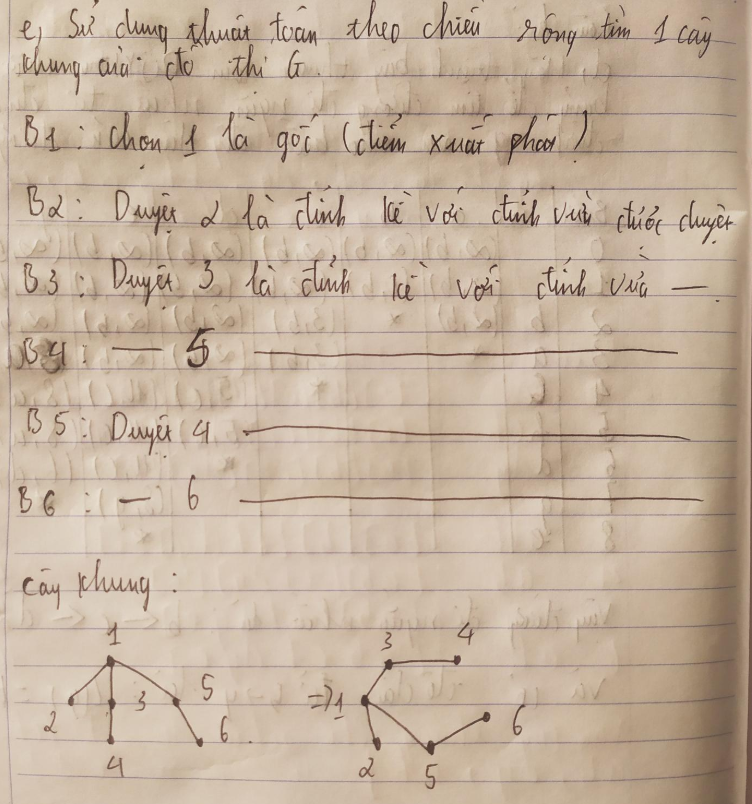 e, Sử dụng thuật toán theo chiều rộng tìm 1 cây
khung của đồ thị G.
B1: Chọn 1 là gốc (điểm xuất phát)
B2: Duyệt 2 là đỉnh kề với đỉnh vừa được duyệt
B3: Duyệt 3 là đỉnh kề với đỉnh vừa —
B4: — 5 —
B5: Duyệt 4 —
B6: — 6 —
Cây khung:
1
2 3 5
4 6
=> 1 3 4
2 5 6